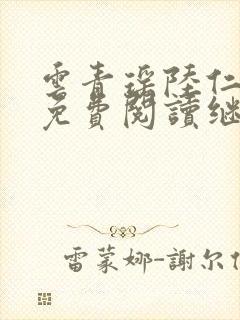 雲青瑶陸仁
免費閱讀继
雷蒙娜-謝尔